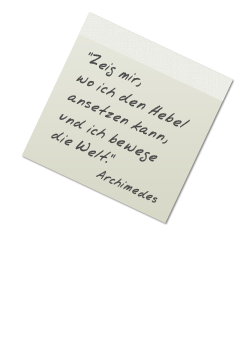 "Zeig mir,
wo ich den Hebel
ansetzen kann,
und ich bewege
die Welt."
Archimedes